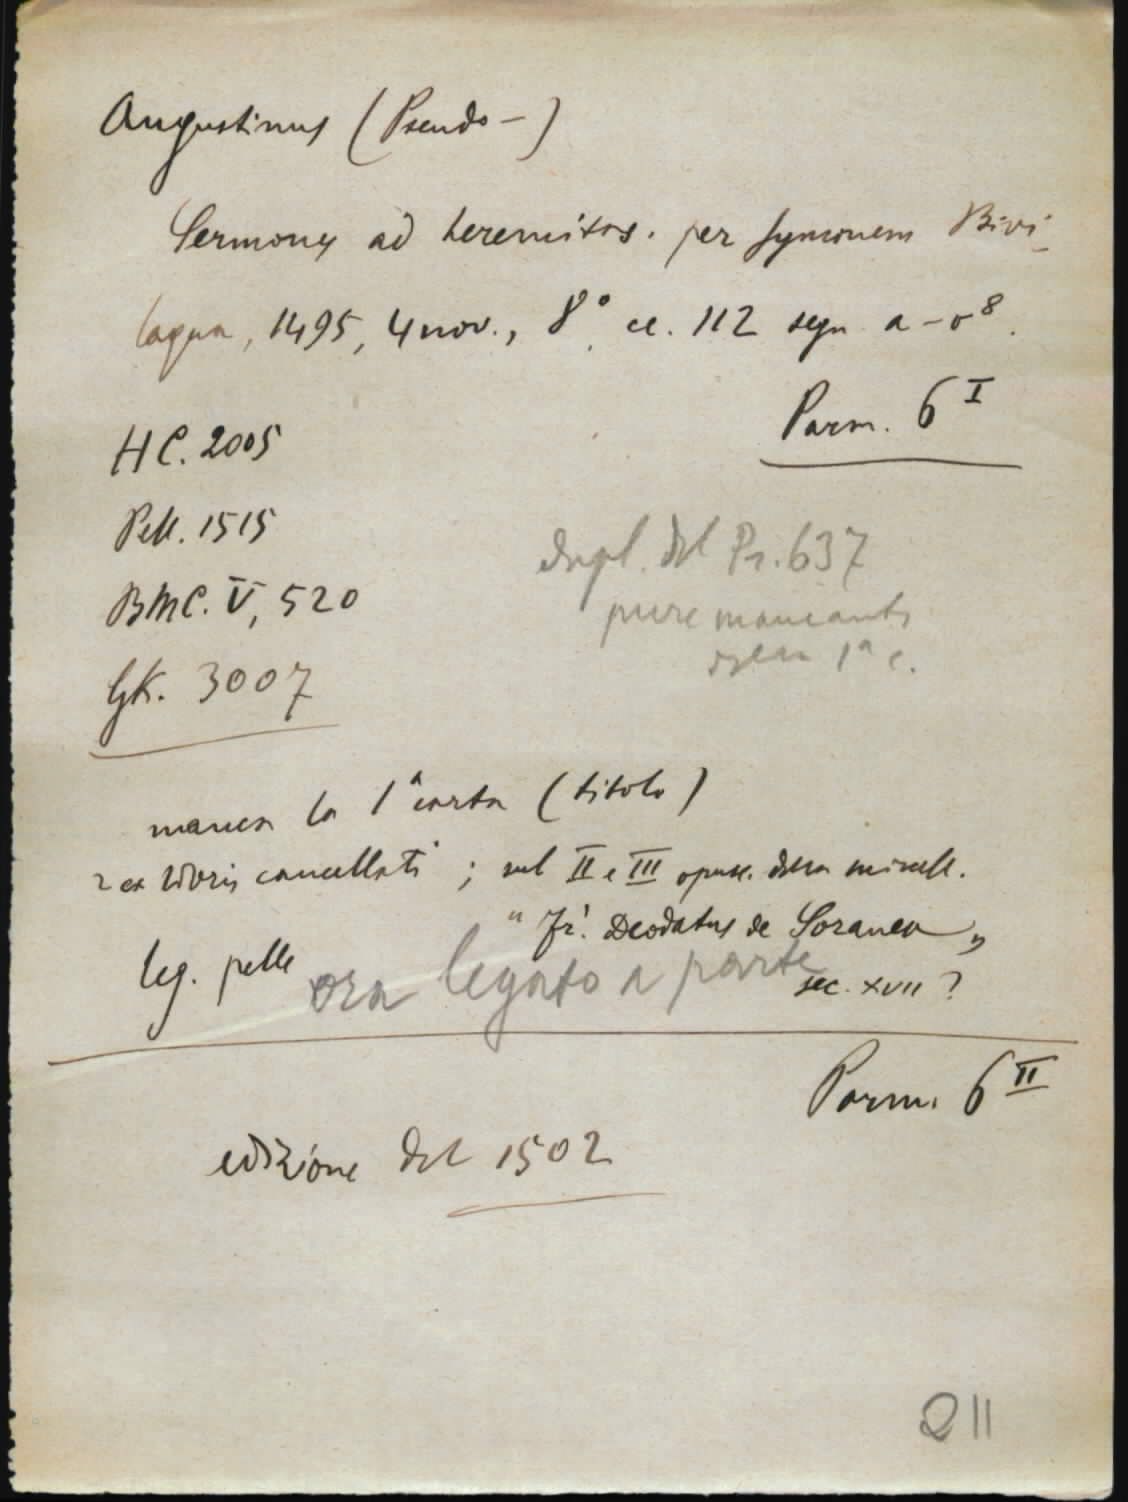 Augustinus (Pseudo-)
Sermones ad heremitas. per Symonem Bivi-
laqua, 1495, 4 nov., 8°, cc. 112 segn. a-o⁸.
Parm. 6 I
HC. 2005
Pell. 1515
BMC. V, 520
GK. 3007
dupl. del Pr. 637
pure mancante
della 1ª c.
manca la 1ª carta (titolo)
2 ex libris cancellati; sul II e III opusc. della miscell.
"Fr. Deodatus de Soranea"
sec. XVII?
leg. pelle
ora legato a parte
Parm. 6 II
edizione del 1502
211